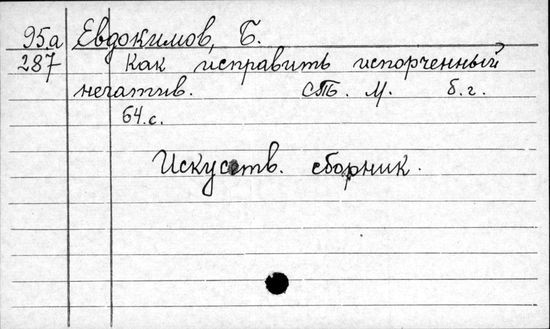 95а Евдокимов, Б.
287 Как исправить испорченный
негатив. СПб. М. б.г.
64.с.
Искусств. сборник.